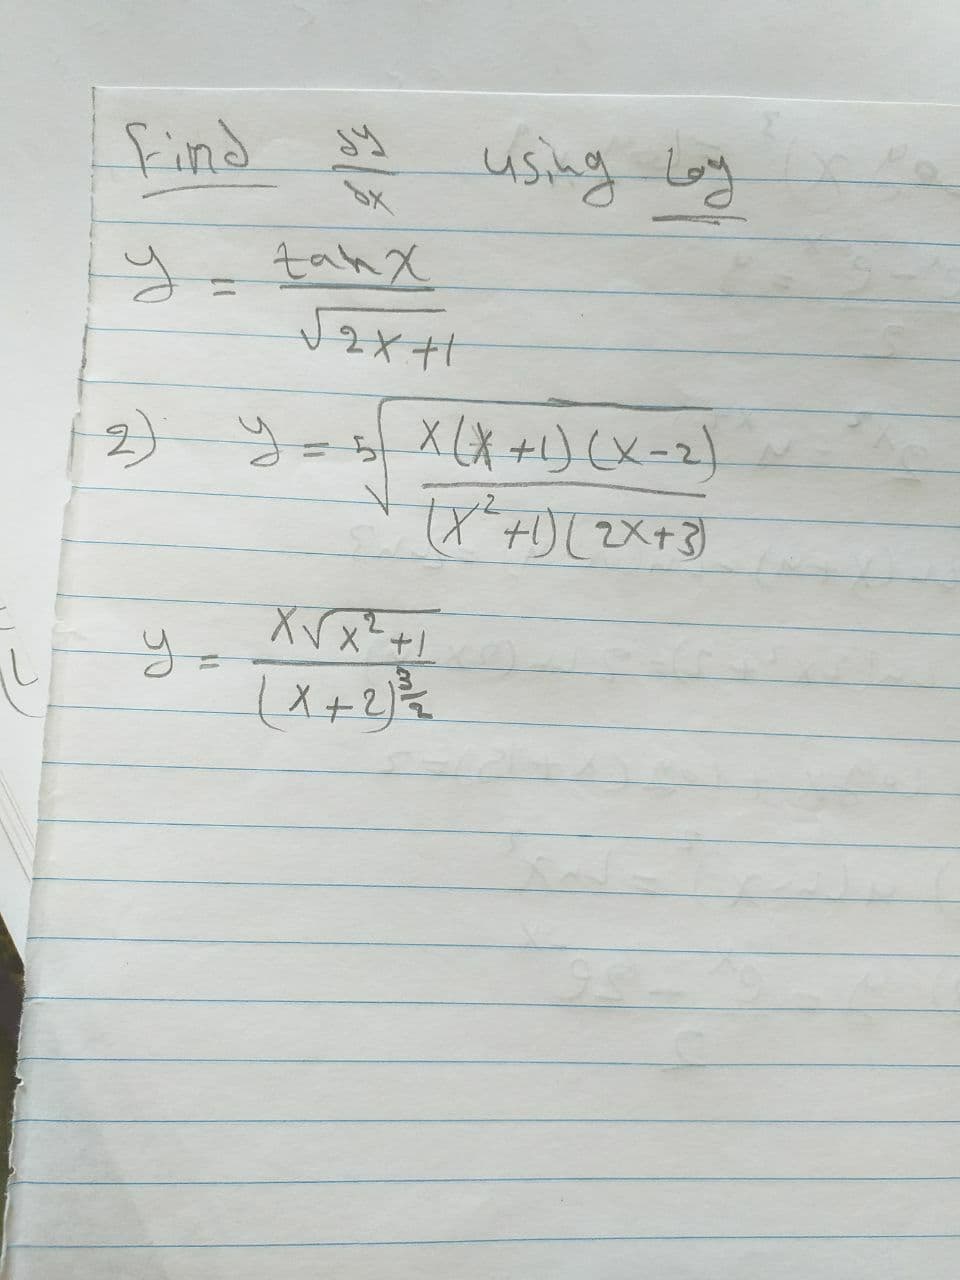 Find dy/dx using Log
y = tanx/√(2x+1)
2) y = ⁵√(x(x+1)(x-2)/(x²+1)(2x+3))
y = x√(x²+1)/(x+2)^(3/2)